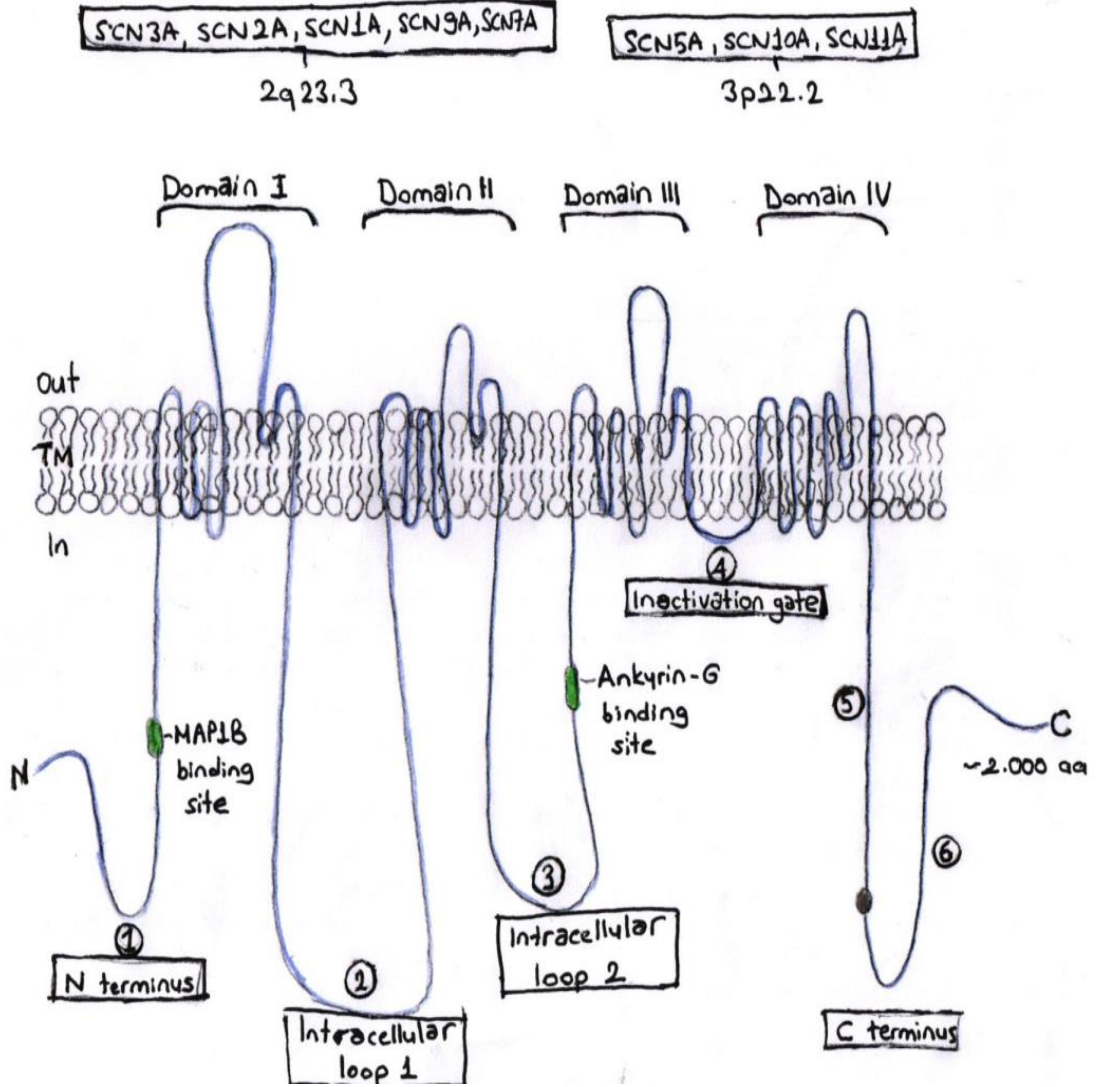 SCN3A, SCN2A, SCN1A, SCN9A, SCN7A
2q23.3
SCN5A, SCN10A, SCN11A
3p22.2
Domain I
Domain II
Domain III
Domain IV
Out
TM
In
4
Inactivation gate
5
Ankyrin-G
binding
site
MAP1B
binding
site
N
C
~2.000 aa
6
3
Intracellular
loop 2
1
N terminus
2
Intracellular
loop 1
C terminus